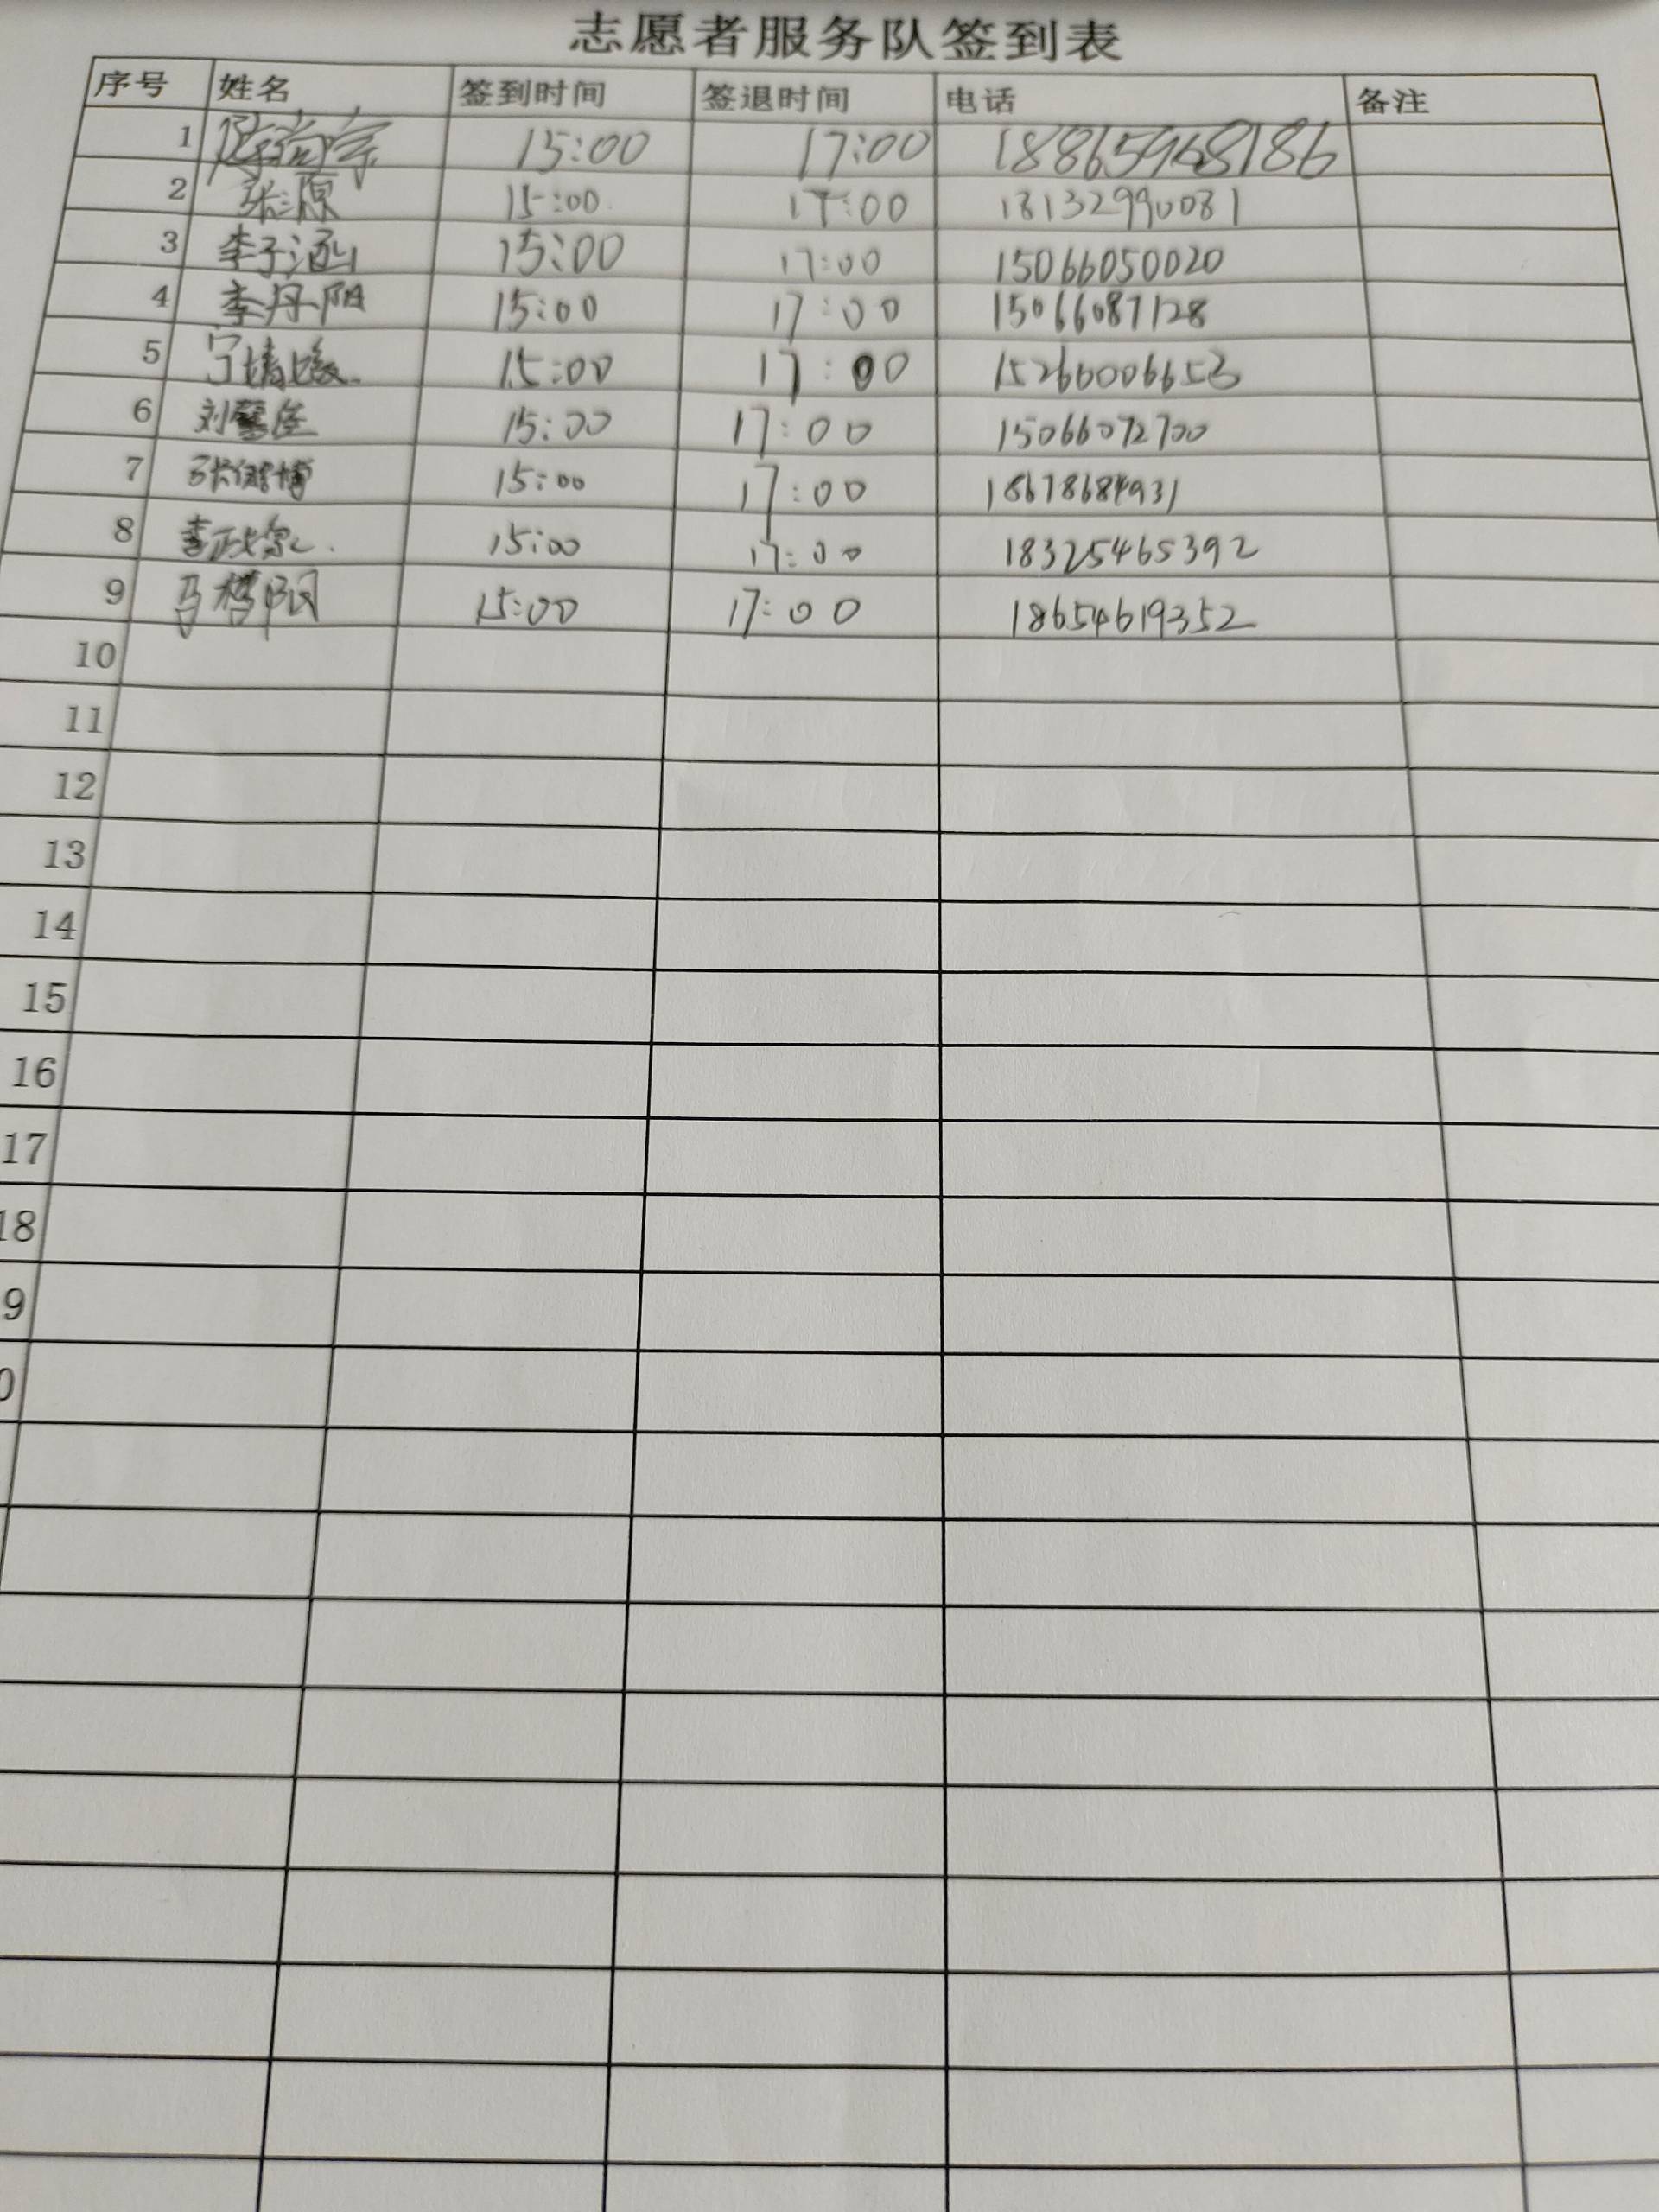 志愿者服务队签到表
序号 姓名 签到时间 签退时间 电话 备注
1 陈尚宗 15:00 17:00 18865968186
2 张源 15:00 17:00 18132990081
3 李子涵 15:00 17:00 15066050020
4 李丹阳 15:00 17:00 15066087128
5 宁婧媛 15:00 17:00 15266006653
6 15:00 17:00 15066072700
7 15:00 17:00 18678684931
8 15:00 17:00 18325465392
9 15:00 17:00 18654619352
10
11
12
13
14
15
16
17
18
9
0